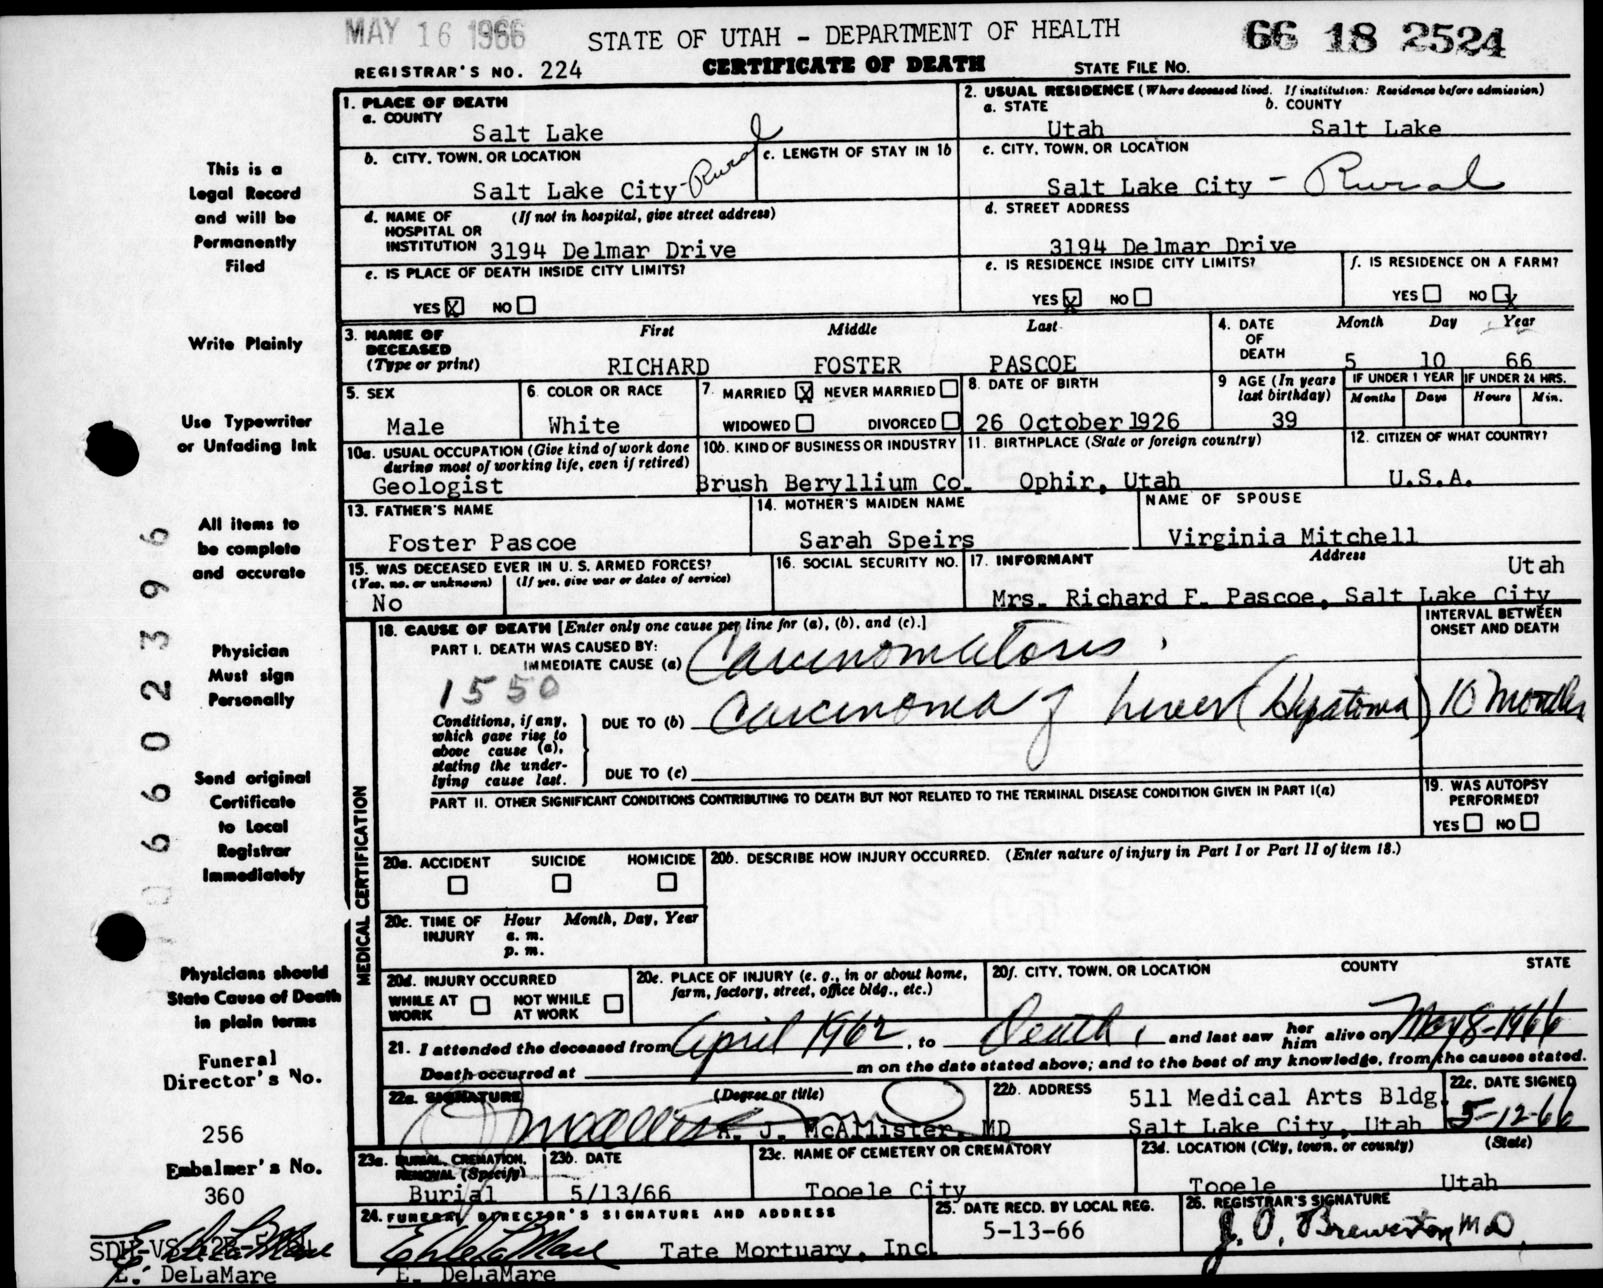 MAY 16 1966
STATE OF UTAH - DEPARTMENT OF HEALTH
66 18 2524
REGISTRAR'S NO. 224
CERTIFICATE OF DEATH
STATE FILE NO.
1. PLACE OF DEATH
a. COUNTY
Salt Lake
2. USUAL RESIDENCE (Where deceased lived. If institution: Residence before admission)
a. STATE b. COUNTY
Utah Salt Lake
b. CITY, TOWN, OR LOCATION
Salt Lake City-Rural
c. LENGTH OF STAY IN 1b
c. CITY, TOWN, OR LOCATION
Salt Lake City - Rural
d. NAME OF (If not in hospital, give street address)
HOSPITAL OR
INSTITUTION 3194 Delmar Drive
d. STREET ADDRESS
3194 Delmar Drive
e. IS PLACE OF DEATH INSIDE CITY LIMITS?
YES X NO
e. IS RESIDENCE INSIDE CITY LIMITS?
YES X NO
f. IS RESIDENCE ON A FARM?
YES NO X
3. NAME OF
DECEASED
(Type or print)
First Middle Last
RICHARD FOSTER PASCOE
4. DATE
OF
DEATH
Month Day Year
5 10 66
5. SEX
Male
6. COLOR OR RACE
White
7. MARRIED X NEVER MARRIED
WIDOWED DIVORCED
8. DATE OF BIRTH
26 October 1926
9 AGE (In years
last birthday)
39
IF UNDER 1 YEAR IF UNDER 24 HRS.
Months Days Hours Min.
10a. USUAL OCCUPATION (Give kind of work done
during most of working life, even if retired)
Geologist
10b. KIND OF BUSINESS OR INDUSTRY
Brush Beryllium Co.
11. BIRTHPLACE (State or foreign country)
Ophir, Utah
12. CITIZEN OF WHAT COUNTRY?
U.S.A.
13. FATHER'S NAME
Foster Pascoe
14. MOTHER'S MAIDEN NAME
Sarah Speirs
NAME OF SPOUSE
Virginia Mitchell
15. WAS DECEASED EVER IN U. S. ARMED FORCES?
(Yes, no, or unknown) (If yes, give war or dates of service)
No
16. SOCIAL SECURITY NO.
17. INFORMANT Address
Utah
Mrs. Richard F. Pascoe, Salt Lake City
MEDICAL CERTIFICATION
18. CAUSE OF DEATH [Enter only one cause per line for (a), (b), and (c).]
PART I. DEATH WAS CAUSED BY:
IMMEDIATE CAUSE (a) Carcinomatosis.
INTERVAL BETWEEN
ONSET AND DEATH
1550
Conditions, if any,
which gave rise to
above cause (a),
stating the under-
lying cause last.
DUE TO (b) Carcinoma of Liver (Hepatoma) 10 Months
DUE TO (c)
PART II. OTHER SIGNIFICANT CONDITIONS CONTRIBUTING TO DEATH BUT NOT RELATED TO THE TERMINAL DISEASE CONDITION GIVEN IN PART I(a)
19. WAS AUTOPSY
PERFORMED?
YES NO
20a. ACCIDENT SUICIDE HOMICIDE
20b. DESCRIBE HOW INJURY OCCURRED. (Enter nature of injury in Part I or Part II of item 18.)
20c. TIME OF Hour Month, Day, Year
INJURY a. m.
p. m.
20d. INJURY OCCURRED
WHILE AT WORK NOT WHILE AT WORK
20e. PLACE OF INJURY (e. g., in or about home,
farm, factory, street, office bldg., etc.)
20f. CITY, TOWN, OR LOCATION COUNTY STATE
21. I attended the deceased from April 1962, to Death, and last saw her him alive on May 8-1966
Death occurred at m on the date stated above; and to the best of my knowledge, from the causes stated.
22a. SIGNATURE (Degree or title)
A. J. McAllister, MD
22b. ADDRESS
511 Medical Arts Bldg.
Salt Lake City, Utah
22c. DATE SIGNED
5-12-66
23a. BURIAL, CREMATION,
REMOVAL (Specify)
Burial
23b. DATE
5/13/66
23c. NAME OF CEMETERY OR CREMATORY
Tooele City
23d. LOCATION (City, town, or county) (State)
Tooele Utah
24. FUNERAL DIRECTOR'S SIGNATURE AND ADDRESS
Tate Mortuary, Inc.
E. DeLaMare
25. DATE RECD. BY LOCAL REG.
5-13-66
26. REGISTRAR'S SIGNATURE
J. O. Brewerton MD.
This is a
Legal Record
and will be
Permanently
Filed
Write Plainly
Use Typewriter
or Unfading Ink
All items to
be complete
and accurate
Physician
Must sign
Personally
Send original
Certificate
to Local
Registrar
Immediately
Physicians should
State Cause of Death
in plain terms
Funeral
Director's No.
256
Embalmer's No.
360
E. DeLaMare
06602396